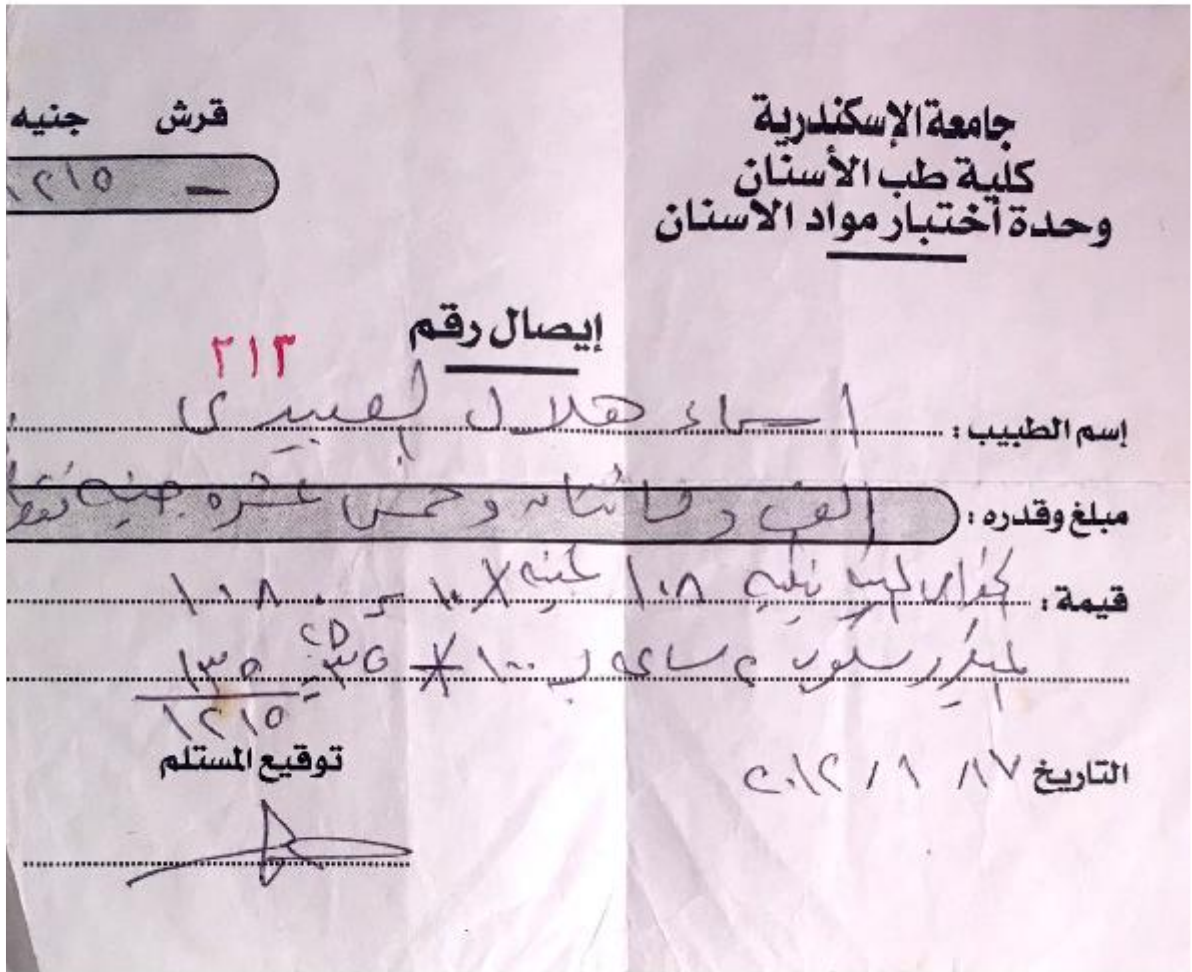 جامعة الإسكندرية
كلية طب الأسنان
وحدة أختبار مواد الاسنان
قرش جنيه
— ١٢١٥
إيصال رقم
٢١٣
إسم الطبيب : اسماء هلال
مبلغ وقدره : الف ومائتان وخمس عشره جنيه فقط
قيمة : ١٠٨ عينه X ١٠ = ١٠٨٠
ساعه ب ١٠٠ * ٣٥ = ١٣٥
CD
١٢١٥
التاريخ ١٧ / ٩ / ٢٠١٢
توقيع المستلم